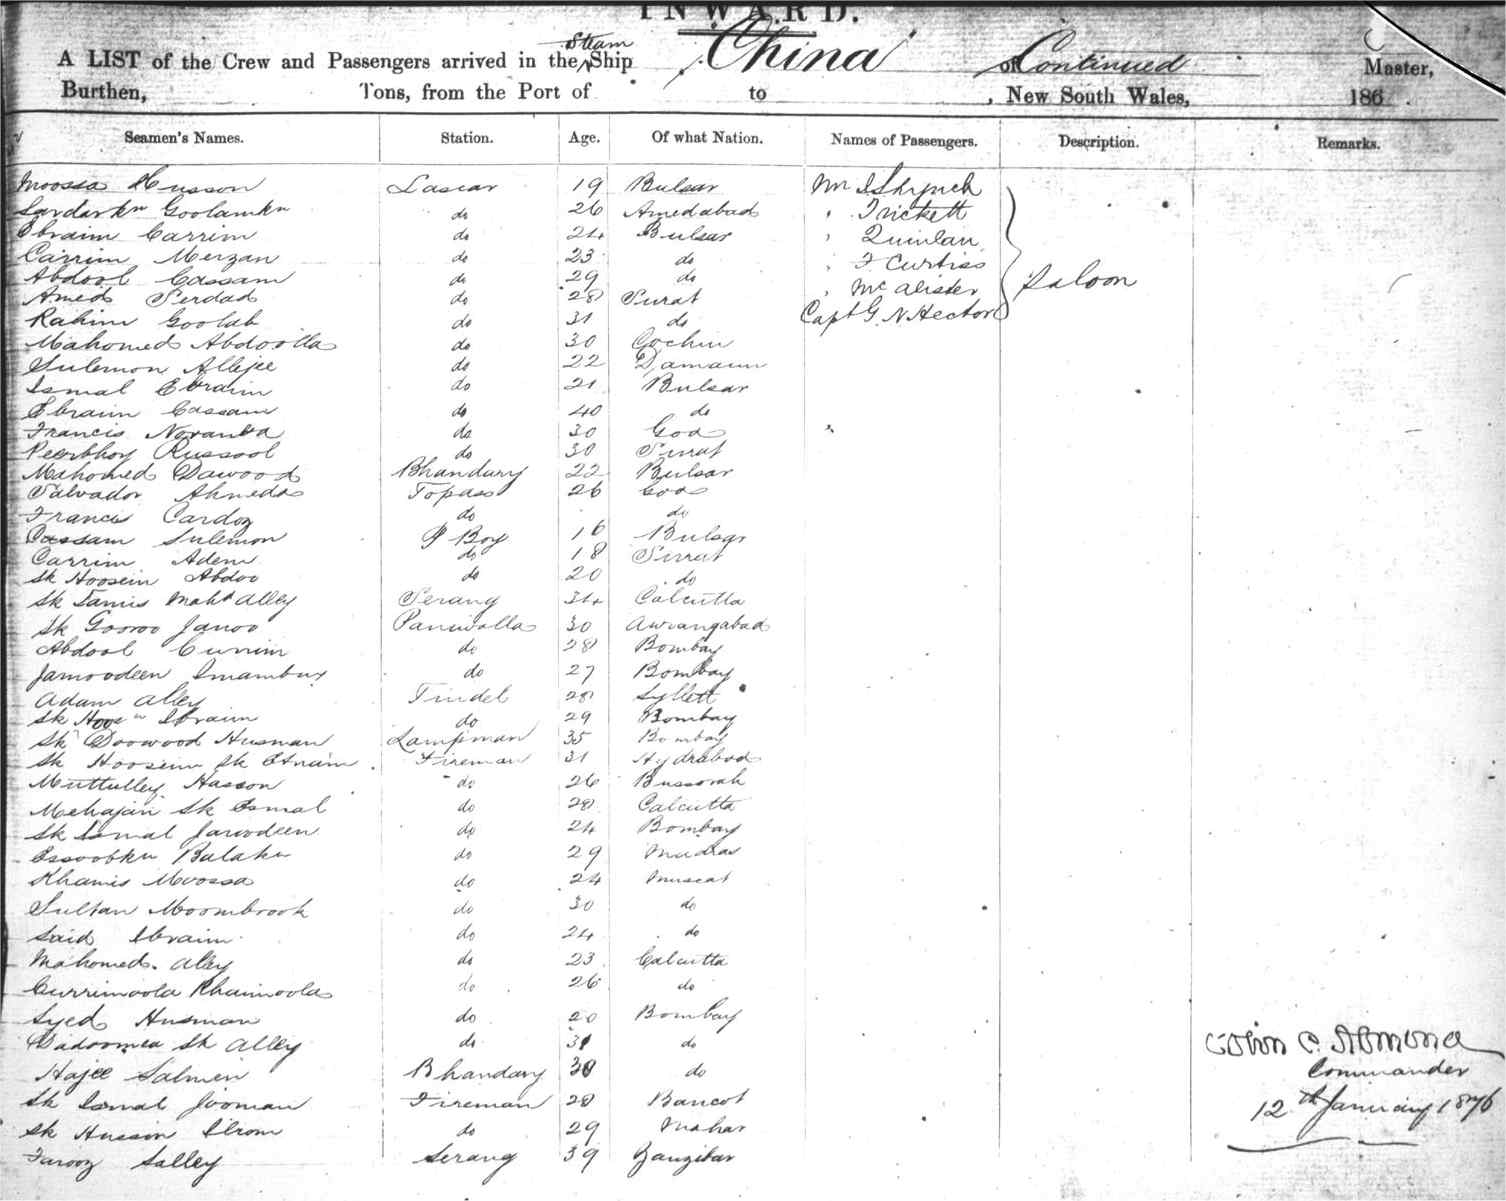 INWARD.
A LIST of the Crew and Passengers arrived in the Steam Ship China of Continued Master,
Burthen, Tons, from the Port of to , New South Wales, 186 .
Seamen's Names. Station. Age. Of what Nation. Names of Passengers. Description. Remarks.
Moossa Husson Lascar 19 Bulsar Mr
Sardarkn Goolamkn do 26 Amedabad " Trickett
Ebraim Carrim do 24 Bulsar " Quinlan
Carrim Merzan do 23 do " F Curtiss
Abdool Cassam do 29 do " Mc Alister Saloon
Amed Serdad do 28 Surat Capt G. N Hector
Rahim Goolab do 31 do
Mahomed Abdoolla do 30 Cochin
Sulemon Allejee do 22 Damaun
Ismal Ebraim do 21 Bulsar
Ebraim Cassam do 40 do
Francis Noranha do 30 Goa
Peerbhoy Russool do 30 Surat
Mahomed Dawood Bhandary 22 Bulsar
Salvador Ahmeda Topass 26 Goa
Francis Cardoz do do
Cassam Sulemon Boy 16 Bulsar
Carrim Adem do 18 Surat
Sk Hoosein Abdoo do 20 do
Sk Tamis Mahd Alley Serang 34 Calcutta
Sk Gooroo Janoo Paniwalla 30 Awrangabad
Abdool Currim do 28 Bombay
Jamoodeen Imambux do 27 Bombay
Adam Alley Tindel 28 Syllett
Sk Hoosn Ebraim do 29 Bombay
Sk Doowood Husman Lampman 35 Bombay
Sk Hoosein Sk Ebraim Fireman 31 Hydrabad
Muttulley Hasson do 26 Bussorah
Mehajan Sk Esmal do 28 Calcutta
Sk Ismal Jawodeen do 24 Bombay
Essoobkn Balakn do 29 Madras
Khamis Moossa do 24 Muscat
Sultan Moombrook do 30 do
Said Ebraim do 24 do
Mahomed Alley do 23 Calcutta
Currimoola Khaimoola do 26 do
Syed Husman do 20 Bombay
Dadoomea Sk Alley do 31 do
Hajee Salmen Bhandary 30 do
Sk Ismal Jooman Fireman 28 Bancot
Sk Hussin Ebrom do 29 Mahar
Farooz Salley Serang 39 Zanzibar
Commander
12th January 1876